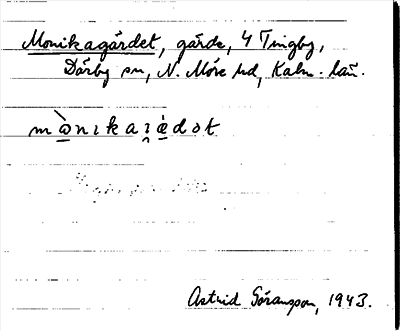 Monikagärdet, gärde, 4 Tingby,
Dörby sn, N. Möre hd, Kalm. län.
Astrid Göransson, 1943.